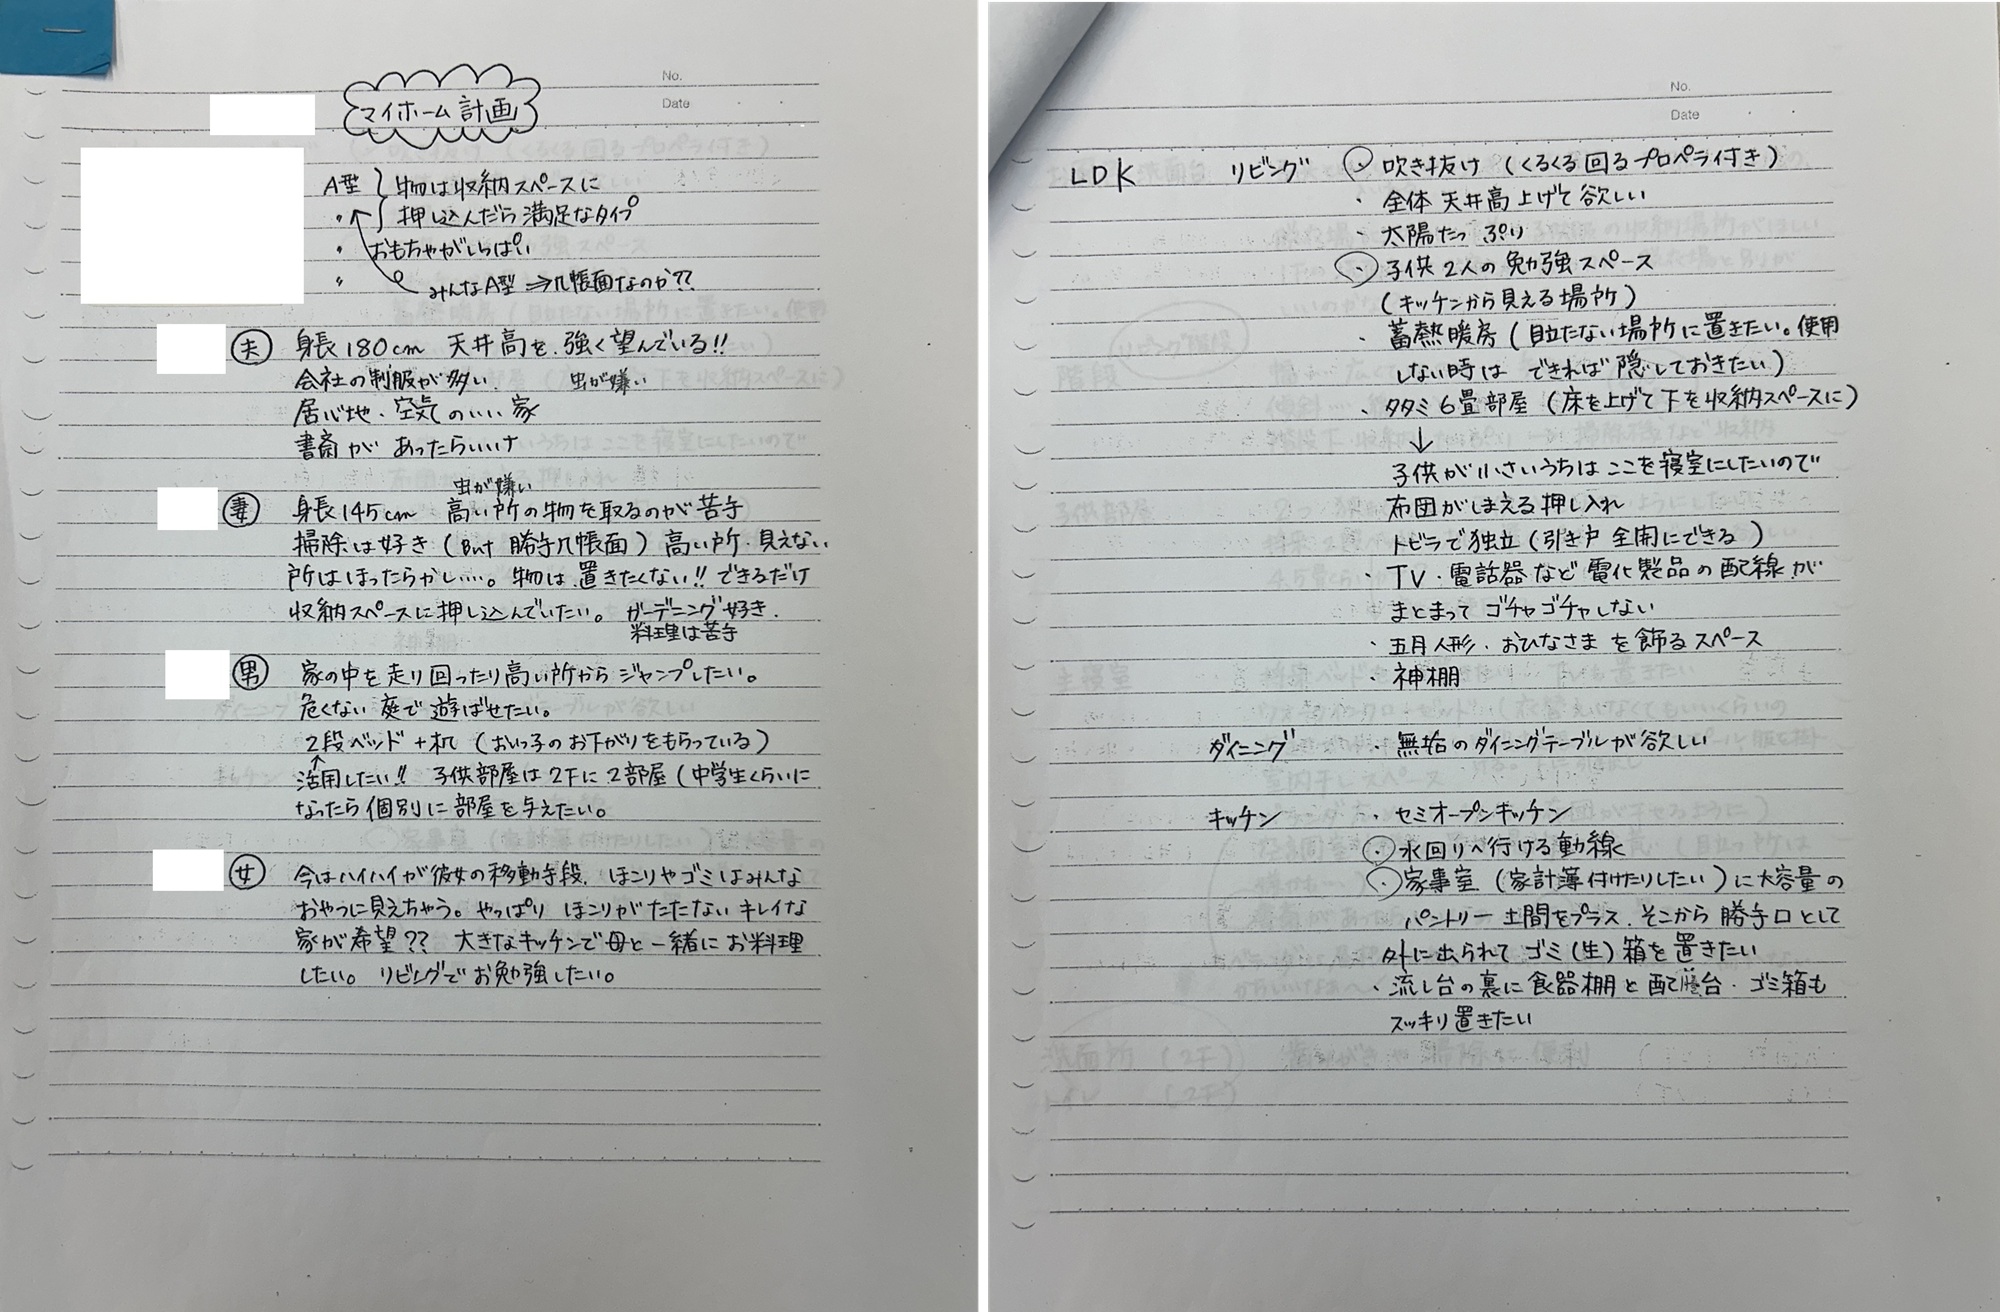 No.
Date
マイホーム計画
A型 物は収納スペースに
〃 押し込んだら満足なタイプ
〃 おもちゃがいっぱい
〃 みんなA型 ⇒ 几帳面なのか??
夫 身長180cm 天井高を、強く望んでいる!!
会社の制服が多い、 虫が嫌い
居心地・空気のいい家
書斎が あったらいいけ
虫が嫌い
妻 身長145cm 高い所の物を取るのが苦手
掃除は好き (But 勝手几帳面) 高い所・見えない
所はほったらかし……。物は、置きたくない!! できるだけ
収納スペースに押し込んでいたい。 ガーデニング好き.
料理は苦手
男 家の中を走り回ったり高い所からジャンプしたい。
危くない庭で遊ばせたい。
2段ベッド+机 (おいっ子のお下がりをもらっている)
↑
活用したい!! 子供部屋は2Fに2部屋 (中学生くらいに
なったら個別に部屋を与えたい。
女 今はハイハイが彼女の移動手段、ほこりやゴミはみんな
おやつに見えちゃう。やっぱり ほこりがたたない キレイな
家が希望?? 大きなキッチンで母と一緒にお料理
したい。 リビングでお勉強したい。
No.
Date
LDK リビング ・吹き抜け (くるくる回るプロペラ付き)
・全体 天井高上げて欲しい
・太陽たっぷり
・子供2人の勉強スペース
(キッチンから見える場所)
・蓄熱暖房 (目立たない場所に置きたい。使用
しない時は できれば隠しておきたい)
・タタミ6畳部屋 (床を上げて下を収納スペースに)
↓
子供が小さいうちは ここを寝室にしたいので
布団がしまえる押し入れ
トビラで独立 (引き戸 全開にできる)
・TV・電話器など電化製品の配線が
まとまって ゴチャゴチャしない
・五月人形・おひなさまを飾るスペース
・神棚
ダイニング ・無垢のダイニングテーブルが欲しい
キッチン ・セミオープンキッチン
・水回りへ行ける動線
・家事室 (家計簿付けたりしたい) に大容量の
パントリー 土間をプラス、そこから勝手口として
外に出られて ゴミ(生)箱を置きたい
・流し台の裏に食器棚と配膳台・ゴミ箱も
スッキリ置きたい